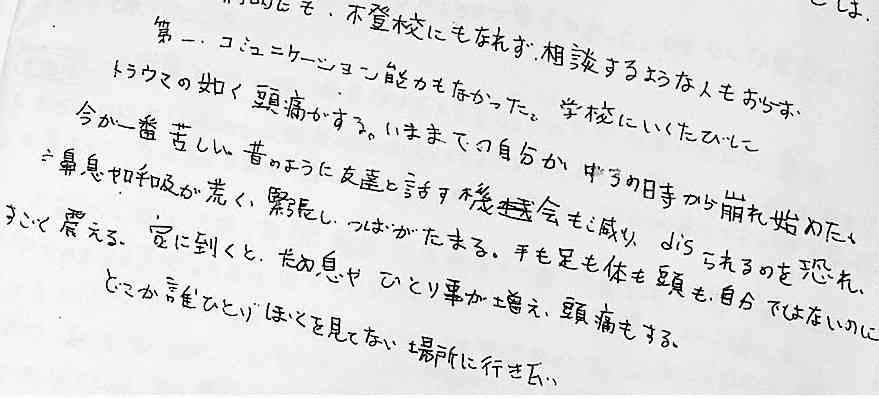 にも、不登校にもなれず、相談するような人もおらず
第一、コミュニケーション能力もなかった。学校にいくたびに
トラウマの如く頭痛がする。いままでの自分が、中3の時から崩れ始めた。
今が一番苦しい。昔のように友達と話す機会も減り、disられるのを恐れ、
鼻息や呼吸が荒く、緊張し、つばがたまる。手も足も体も頭も、自分ではないのに
すごく震える。家に到くと、ため息や ひとり事が増え、頭痛もする。
どこか誰ひとりぼくを見てない場所に行き